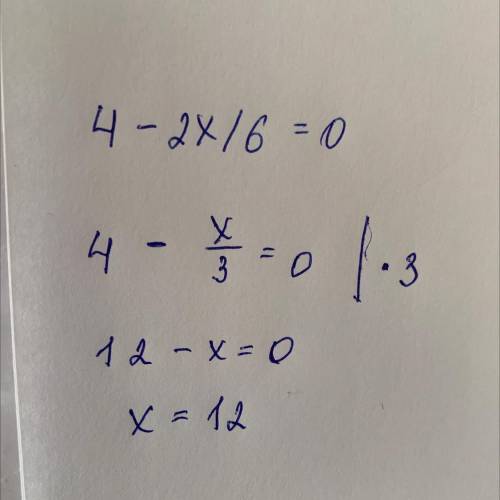 4 - 2x/6 = 0
4 - x/3 = 0 | · 3
12 - x = 0
x = 12